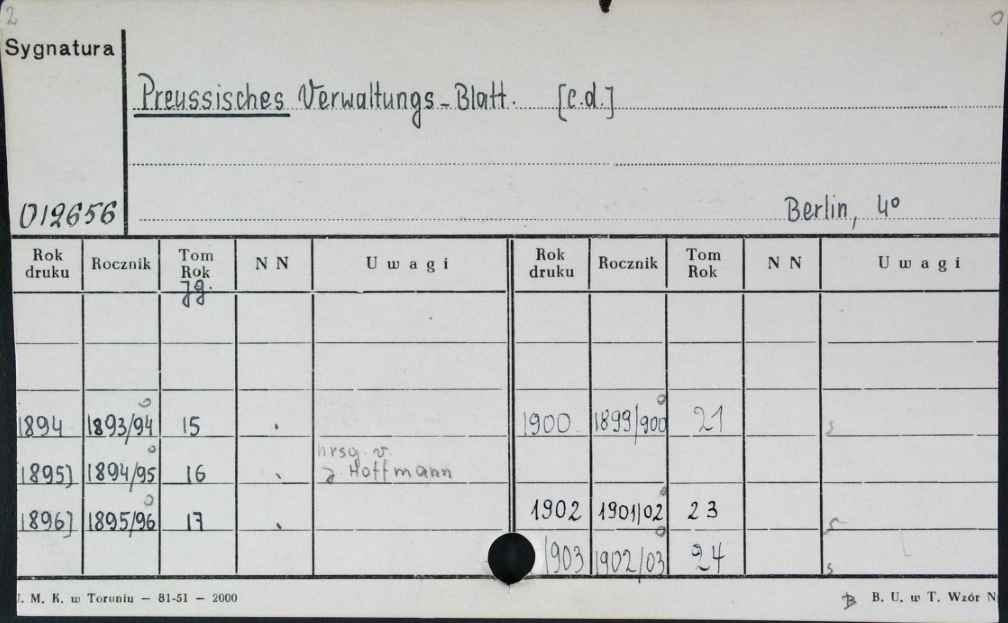 2
Sygnatura
Preussisches Verwaltungs-Blatt. [c.d.]
012656
Berlin, 4°
Rok druku Rocznik Tom Rok Jg. N N Uwagi Rok druku Rocznik Tom Rok N N Uwagi
1894 1893/94 15 1900 1899/900 21
1895] 1894/95 16 hrsg. v. J Hoffmann
1896] 1895/96 17 1902 1901/02 23
1903 1902/03 24
. M. K. w Toruniu — 81-51 — 2000
B. U. w T. Wzór N